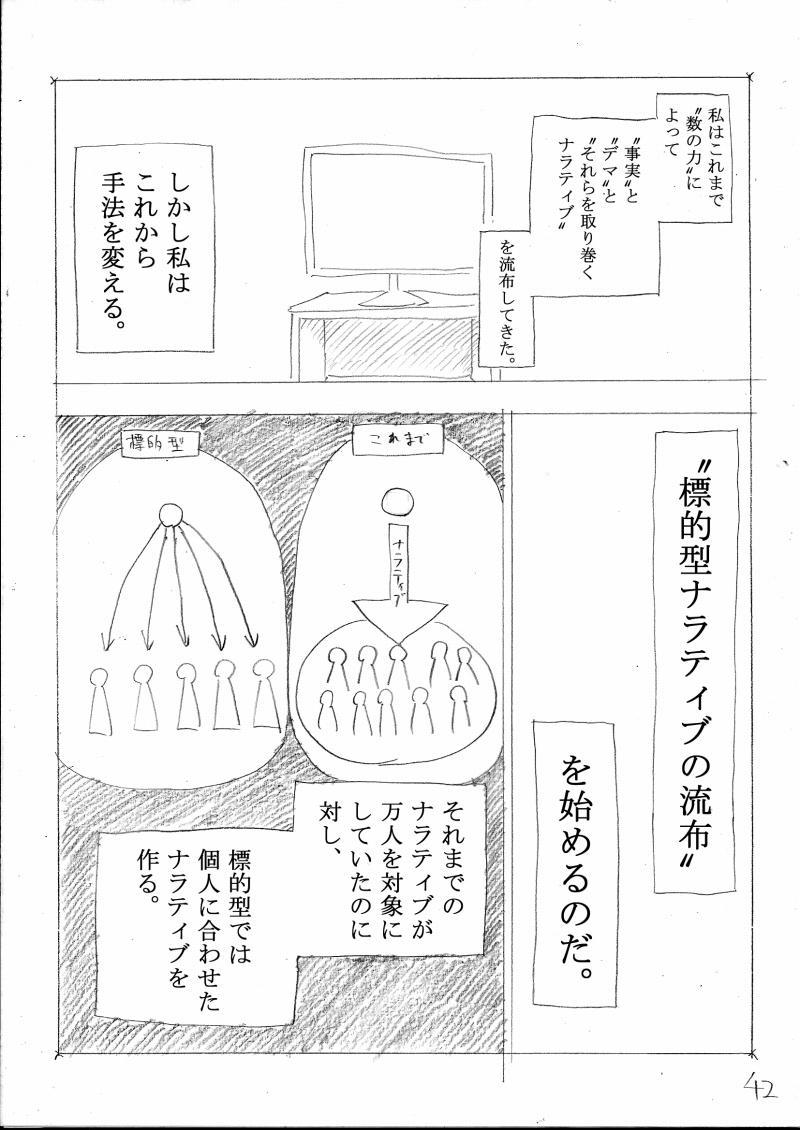 私はこれまで
〝数の力〟に
よって
〝事実〟と
〝デマ〟と
〝それらを取り巻く
ナラティブ〟
を流布してきた。
しかし私は
これから
手法を変える。
〝標的型ナラティブの流布〟
を始めるのだ。
これまで
ナラティブ
標的型
それまでの
ナラティブが
万人を対象に
していたのに
対し、
標的型では
個人に合わせた
ナラティブを
作る。
42